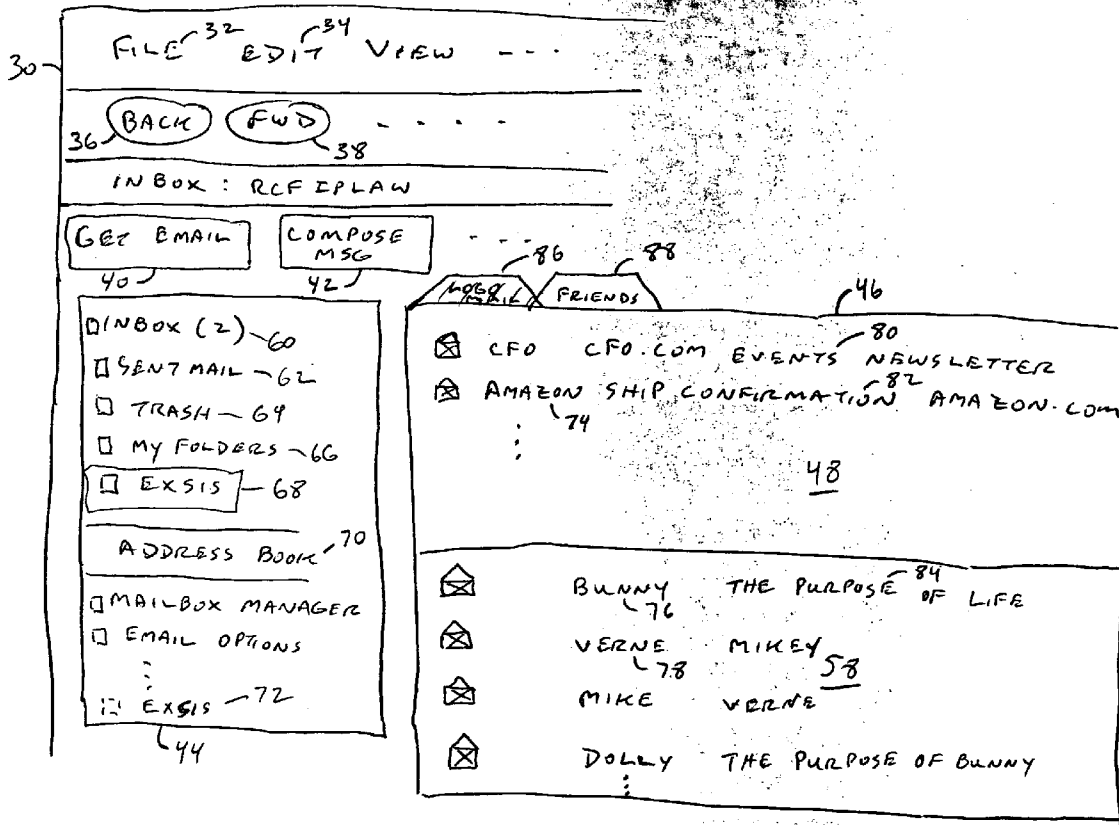 FILE 32 EDIT 34 VIEW - - -
30
BACK FWD - - - -
36 38
INBOX: RCFIPLAW
GET EMAIL COMPOSE MSG - - -
40 42
86 88
FRIENDS 46
INBOX (2) 60
SENT MAIL 62
TRASH 64
MY FOLDERS 66
EXSIS 68
ADDRESS BOOK 70
MAILBOX MANAGER
EMAIL OPTIONS
EXSIS 72
44
CFO CFO.COM EVENTS 80 NEWSLETTER
AMAZON SHIP CONFIRMATION 82 AMAZON.COM
74
48
BUNNY THE PURPOSE 84 OF LIFE
76
VERNE MIKEY
78 58
MIKE VERNE
DOLLY THE PURPOSE OF BUNNY